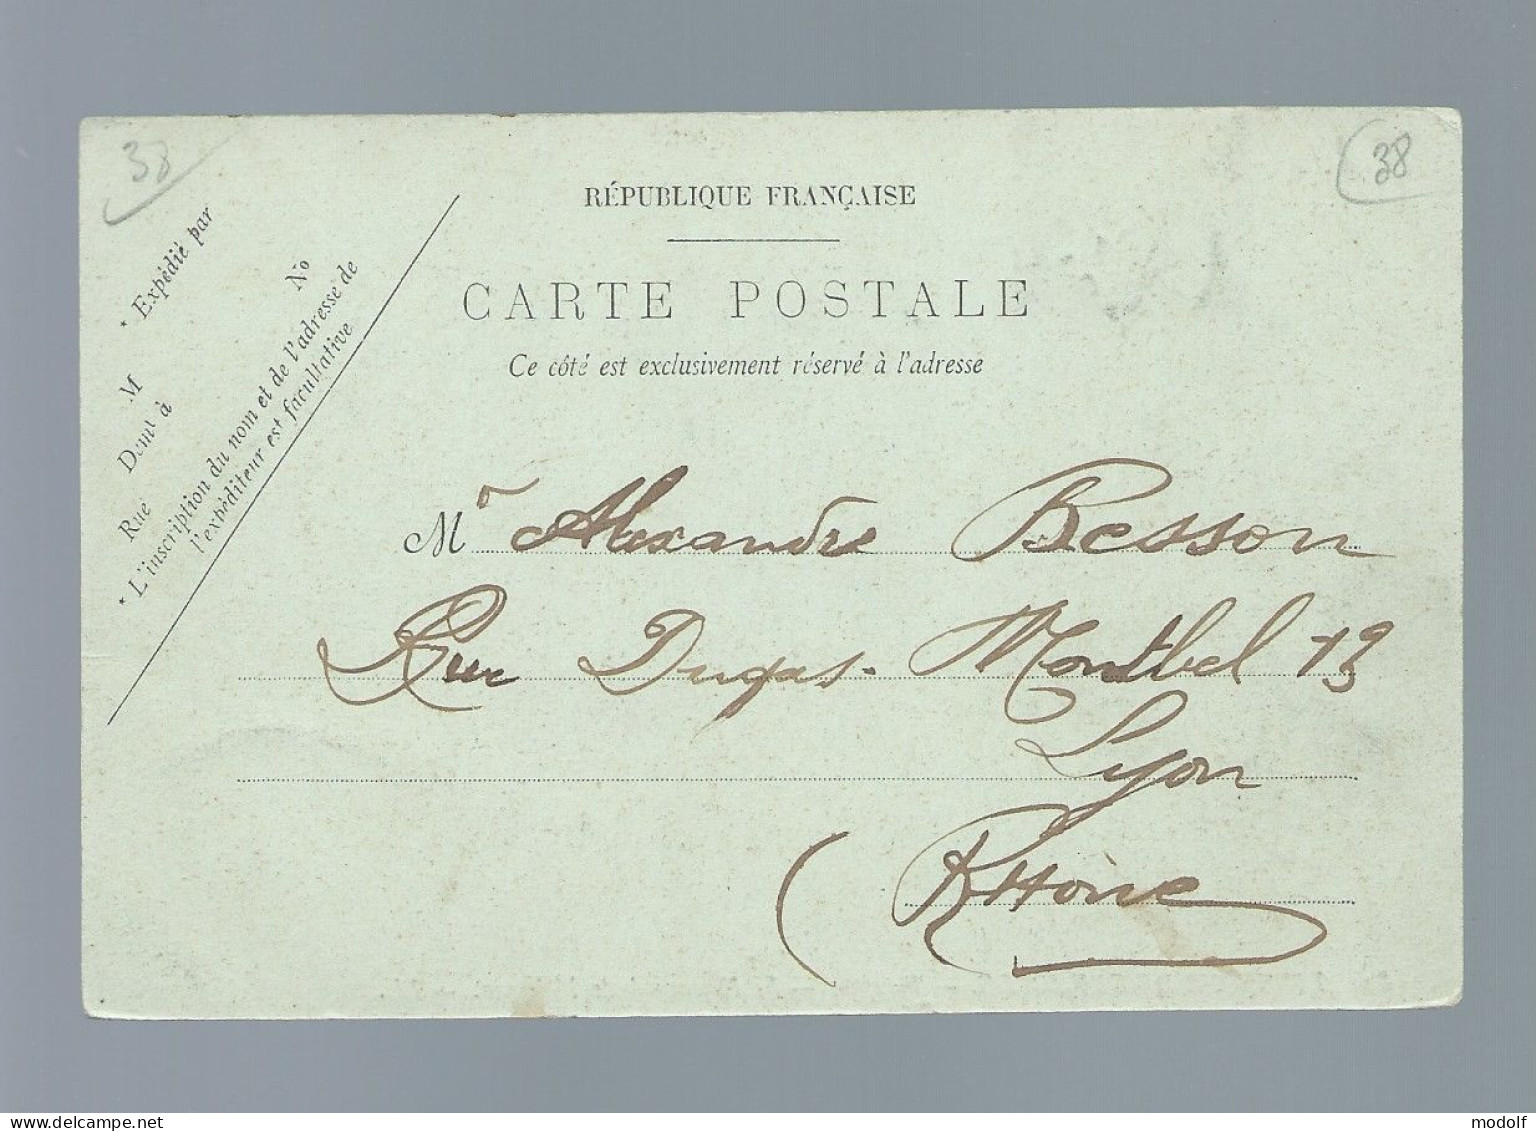 38
38
RÉPUBLIQUE FRANÇAISE
CARTE POSTALE
Ce côté est exclusivement réservé à l'adresse
* Expédié par
M
Demt à
Rue No
* L'inscription du nom et de l'adresse de
l'expéditeur est facultative
Mr Alexandre Besson
Rue Dugas-Montbel 13
Lyon
(Rhône
modolf